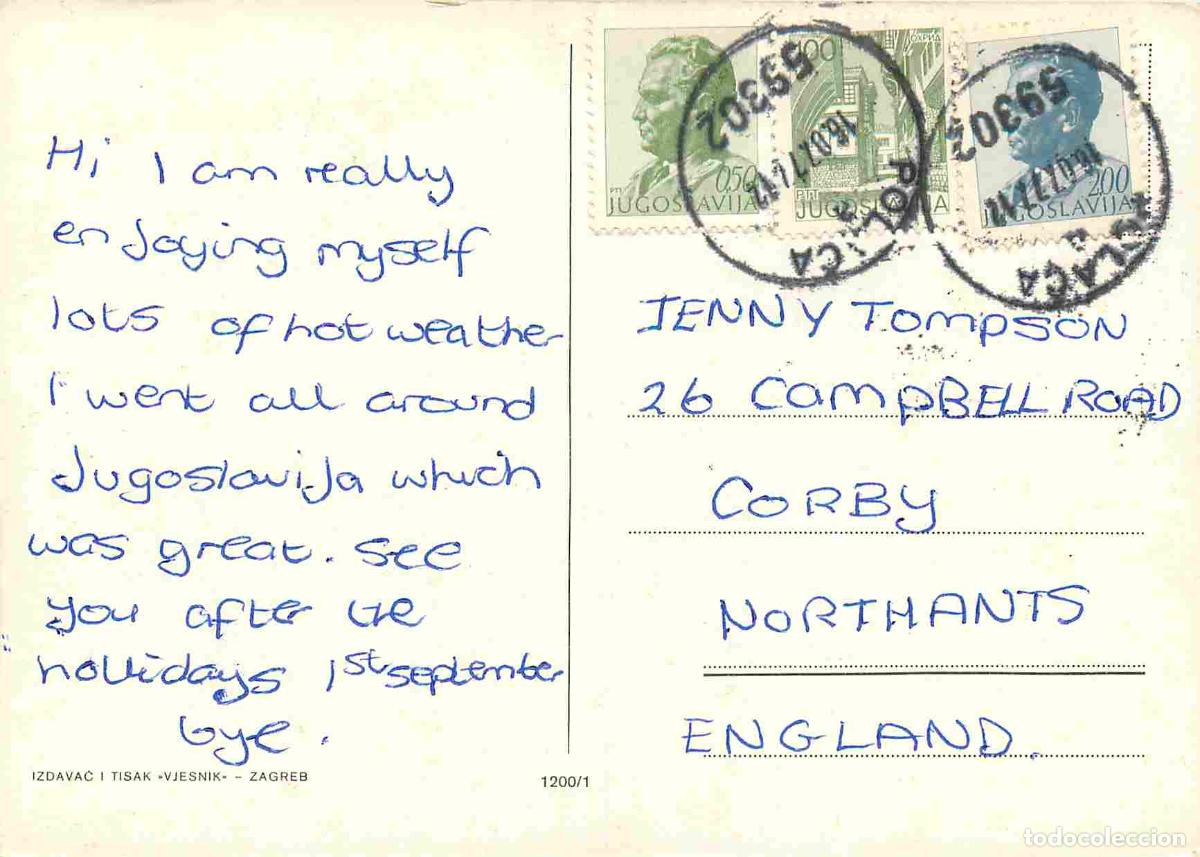 Hi I am really
enjoying myself
lots of hot weather
I went all around
Jugoslavija which
was great. see
you after the
hollidays 1st september
bye.
IZDAVAČ I TISAK »VJESNIK« – ZAGREB
1200/1
0,50
PTT
JUGOSLAVIJA
ОХРИД
PTT
JUGOSLAVIJA
2,00
JUGOSLAVIJA
59302
POLAČA
59302
POLAČA
JENNY TOMPSON
26 CAMPBELL ROAD
CORBY
NORTHANTS
ENGLAND.
todocoleccion